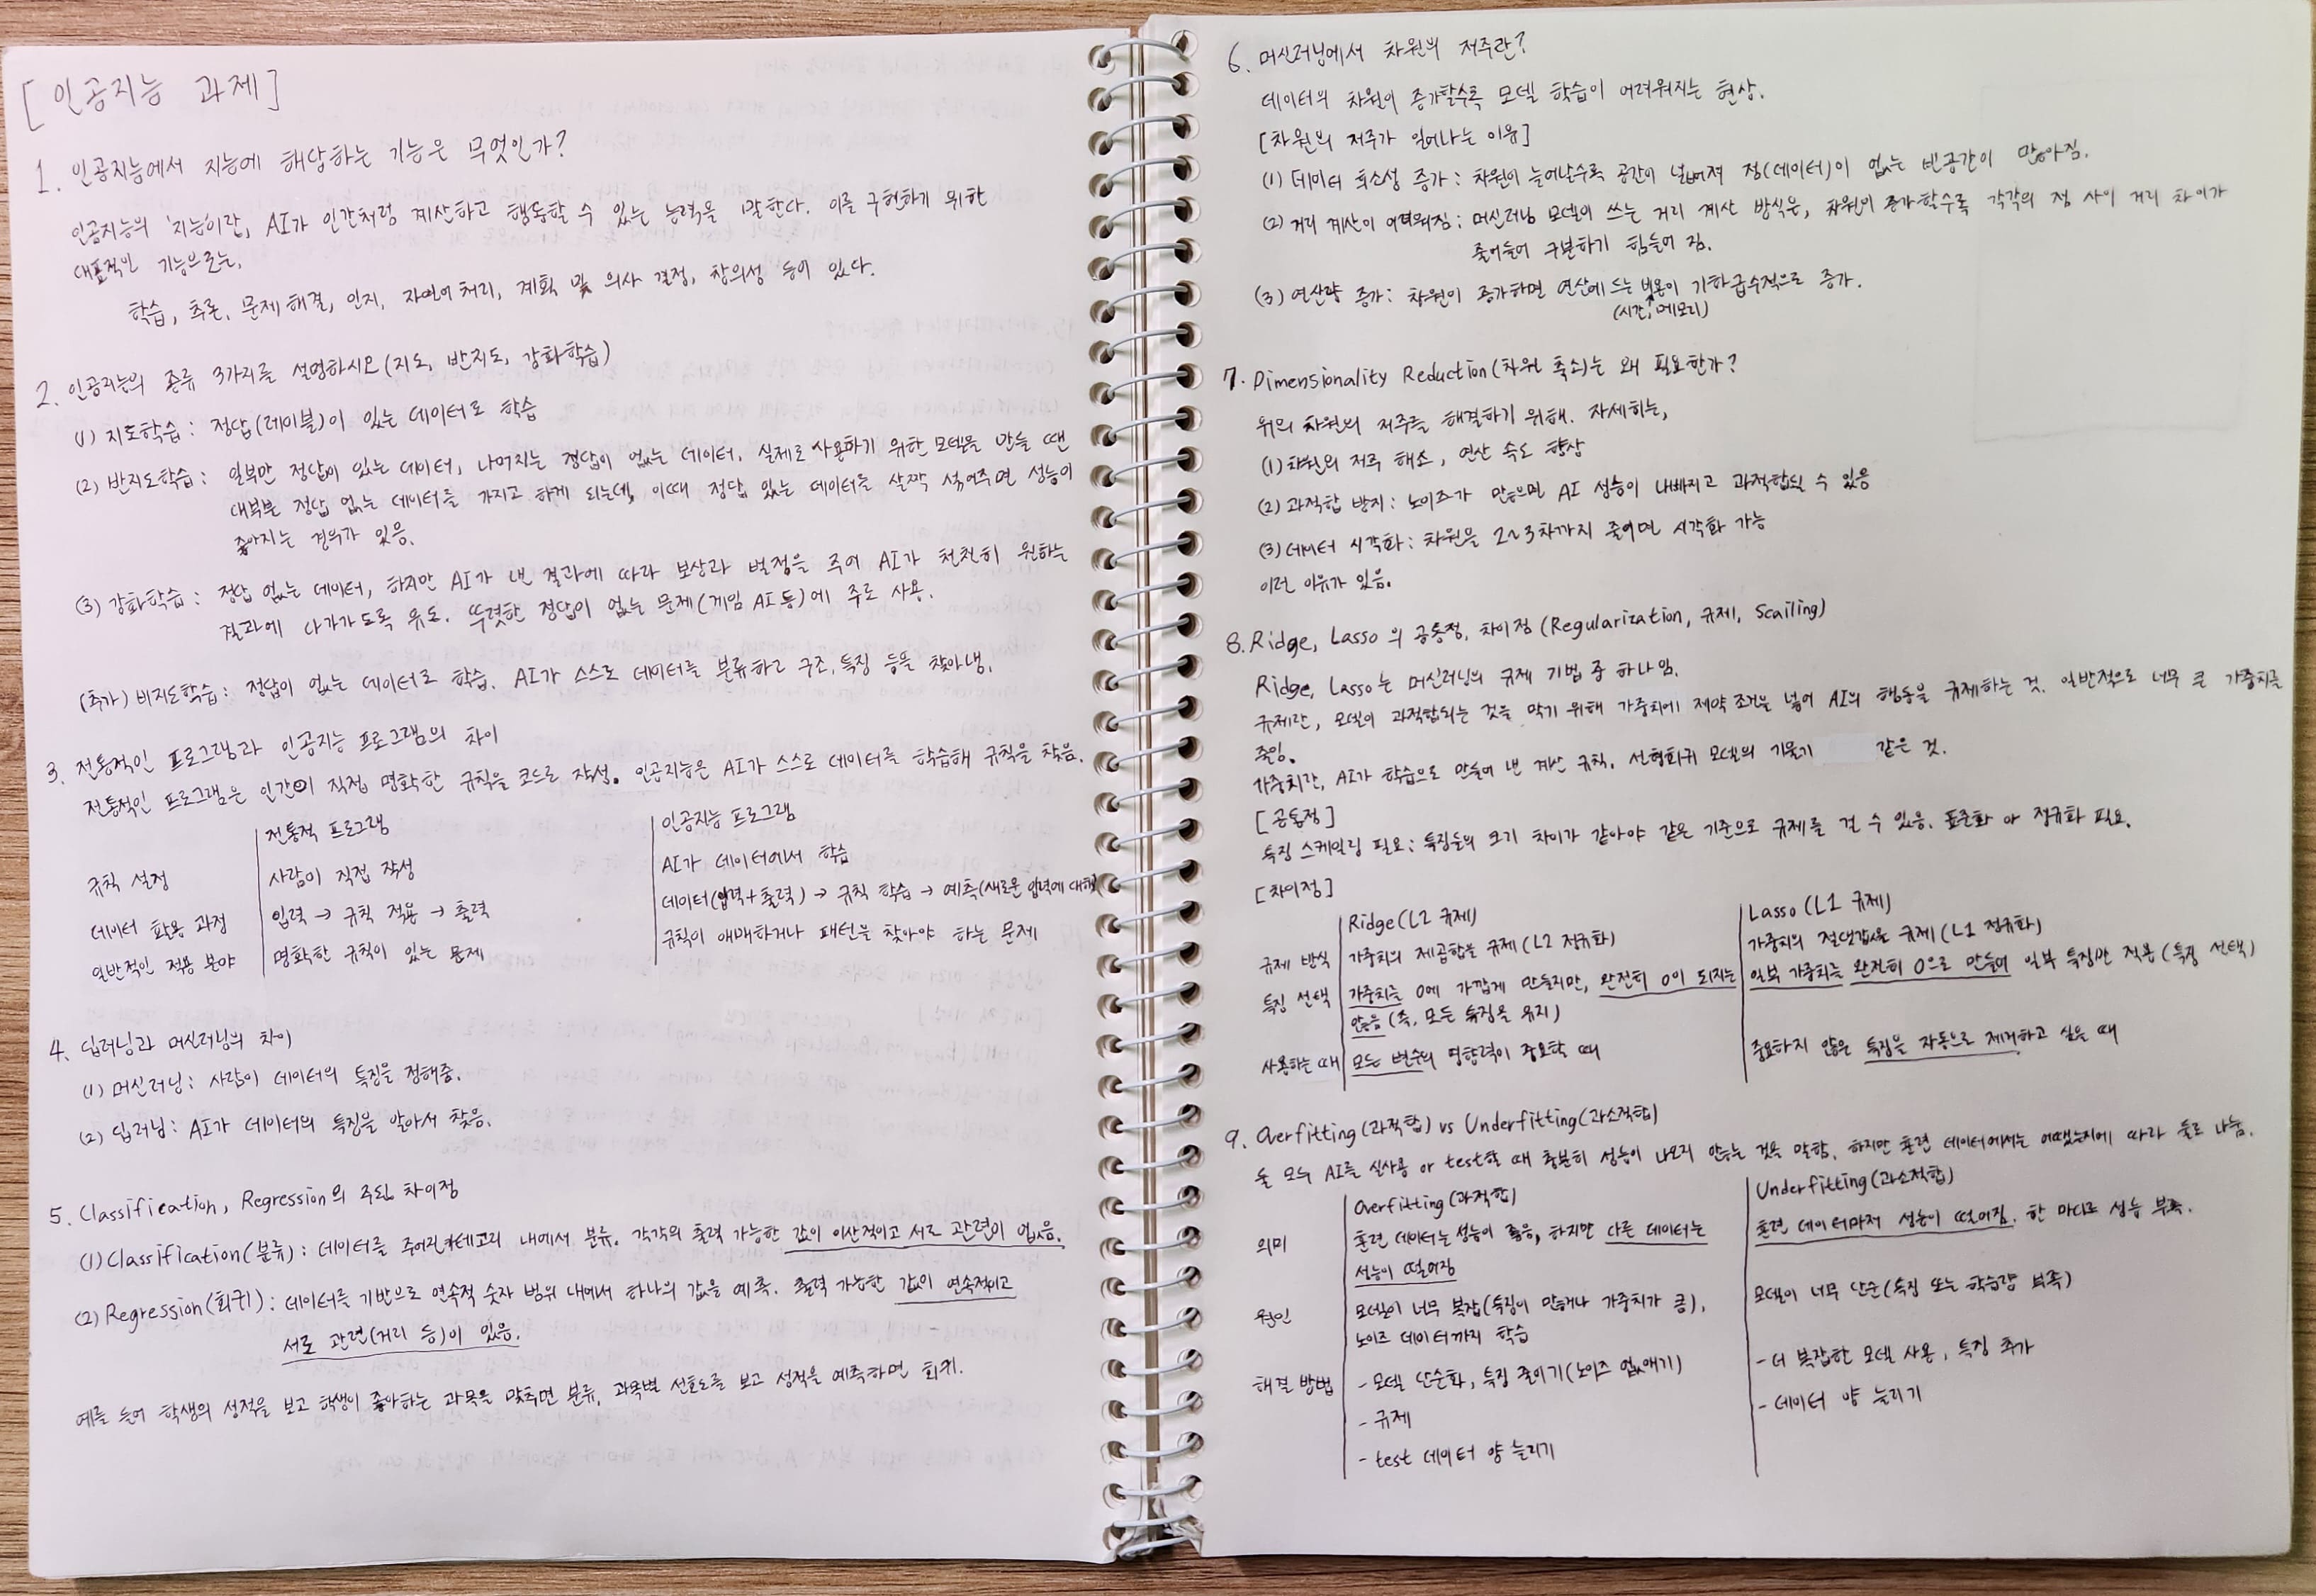 [인공지능 과제]
1. 인공지능에서 지능에 해당하는 기능은 무엇인가?
인공지능의 '지능'이란, AI가 인간처럼 계산하고 행동할 수 있는 능력을 말한다. 이를 구현하기 위한
대표적인 기능으로는,
학습, 추론, 문제 해결, 인지, 자연어 처리, 계획 및 의사 결정, 창의성 등이 있다.
2. 인공지능의 종류 3가지를 설명하시오(지도, 반지도, 강화학습)
(1) 지도학습: 정답(레이블)이 있는 데이터로 학습
(2) 반지도학습: 일부만 정답이 있는 데이터, 나머지는 정답이 없는 데이터. 실제로 사용하기 위한 모델을 만들 땐
대부분 정답 없는 데이터를 가지고 하게 되는데, 이때 정답 있는 데이터를 살짝 섞어주면 성능이
좋아지는 경우가 있음.
(3) 강화학습: 정답 없는 데이터, 하지만 AI가 낸 결과에 따라 보상과 벌점을 주어 AI가 천천히 원하는
결과에 다가가도록 유도. 뚜렷한 정답이 없는 문제(게임 AI 등)에 주로 사용.
(추가) 비지도학습: 정답이 없는 데이터로 학습. AI가 스스로 데이터를 분류하고 구조, 특징 등을 찾아냄.
3. 전통적인 프로그램과 인공지능 프로그램의 차이
전통적인 프로그램은 인간이 직접 명확한 규칙을 코드로 작성. 인공지능은 AI가 스스로 데이터를 학습해 규칙을 찾음.
전통적 프로그램 인공지능 프로그램
규칙 설정 사람이 직접 작성 AI가 데이터에서 학습
데이터 활용 과정 입력 → 규칙 적용 → 출력 데이터(입력+출력) → 규칙 학습 → 예측(새로운 입력에 대해)
일반적인 적용 분야 명확한 규칙이 있는 문제 규칙이 애매하거나 패턴을 찾아야 하는 문제
4. 딥러닝과 머신러닝의 차이
(1) 머신러닝: 사람이 데이터의 특징을 정해줌.
(2) 딥러닝: AI가 데이터의 특징을 알아서 찾음.
5. Classification, Regression의 주된 차이점
(1) Classification(분류): 데이터를 주어진 카테고리 내에서 분류. 각각의 출력 가능한 값이 이산적이고 서로 관련이 없음.
(2) Regression(회귀): 데이터를 기반으로 연속적 숫자 범위 내에서 하나의 값을 예측. 출력 가능한 값이 연속적이고
서로 관련(거리 등)이 있음.
예를 들어 학생의 성적을 보고 학생이 좋아하는 과목을 맞추면 분류, 과목별 선호도를 보고 성적을 예측하면 회귀.
6. 머신러닝에서 차원의 저주란?
데이터의 차원이 증가할수록 모델 학습이 어려워지는 현상.
[차원의 저주가 일어나는 이유]
(1) 데이터 희소성 증가: 차원이 늘어날수록 공간이 넓어져 점(데이터)이 없는 빈공간이 많아짐.
(2) 거리 계산이 어려워짐: 머신러닝 모델이 쓰는 거리 계산 방식은, 차원이 증가할수록 각각의 점 사이 거리 차이가
줄어들어 구분하기 힘들어 짐.
(3) 연산량 증가: 차원이 증가하면 연산에 드는 비용이 기하급수적으로 증가.
(시간, 메모리)
7. Dimensionality Reduction(차원 축소)는 왜 필요한가?
위의 차원의 저주를 해결하기 위해. 자세히는,
(1) 차원의 저주 해소, 연산 속도 향상
(2) 과적합 방지: 노이즈가 많으면 AI 성능이 나빠지고 과적합될 수 있음
(3) 데이터 시각화: 차원을 2~3차까지 줄이면 시각화 가능
이런 이유가 있음.
8. Ridge, Lasso의 공통점, 차이점 (Regularization, 규제, Scailing)
Ridge, Lasso는 머신러닝의 규제 기법 중 하나임.
규제란, 모델이 과적합되는 것을 막기 위해 가중치에 제약 조건을 넣어 AI의 행동을 규제하는 것. 일반적으로 너무 큰 가중치를
줄임.
가중치란, AI가 학습으로 만들어 낸 계산 규칙. 선형회귀 모델의 기울기 같은 것.
[공통점]
특징 스케일링 필요: 특징들의 크기 차이가 같아야 같은 기준으로 규제를 걸 수 있음. 표준화 or 정규화 필요.
[차이점]
Ridge(L2 규제) Lasso(L1 규제)
규제 방식 가중치의 제곱합을 규제(L2 정규화) 가중치의 절댓값을 규제(L1 정규화)
특징 선택 가중치를 0에 가깝게 만들지만, 완전히 0이 되지는 일부 가중치를 완전히 0으로 만들어 일부 특징만 적용(특징 선택)
않음(즉, 모든 특징을 유지)
사용하는 때 모든 변수의 영향력이 중요할 때 중요하지 않은 특징을 자동으로 제거하고 싶을 때
9. Overfitting(과적합) vs Underfitting(과소적합)
둘 모두 AI를 실사용 or test할 때 충분히 성능이 나오지 않는 것을 말함. 하지만 훈련 데이터에서는 어땠는지에 따라 둘로 나뉨.
Overfitting(과적합) Underfitting(과소적합)
의미 훈련 데이터는 성능이 좋음, 하지만 다른 데이터는 훈련 데이터마저 성능이 떨어짐. 한 마디로 성능 부족.
성능이 떨어짐
원인 모델이 너무 복잡(특징이 많거나 가중치가 큼), 모델이 너무 단순(특징 또는 학습량 부족)
노이즈 데이터까지 학습
해결 방법 - 모델 단순화, 특징 줄이기(노이즈 없애기) - 더 복잡한 모델 사용, 특징 추가
- 규제 - 데이터 양 늘리기
- test 데이터 양 늘리기